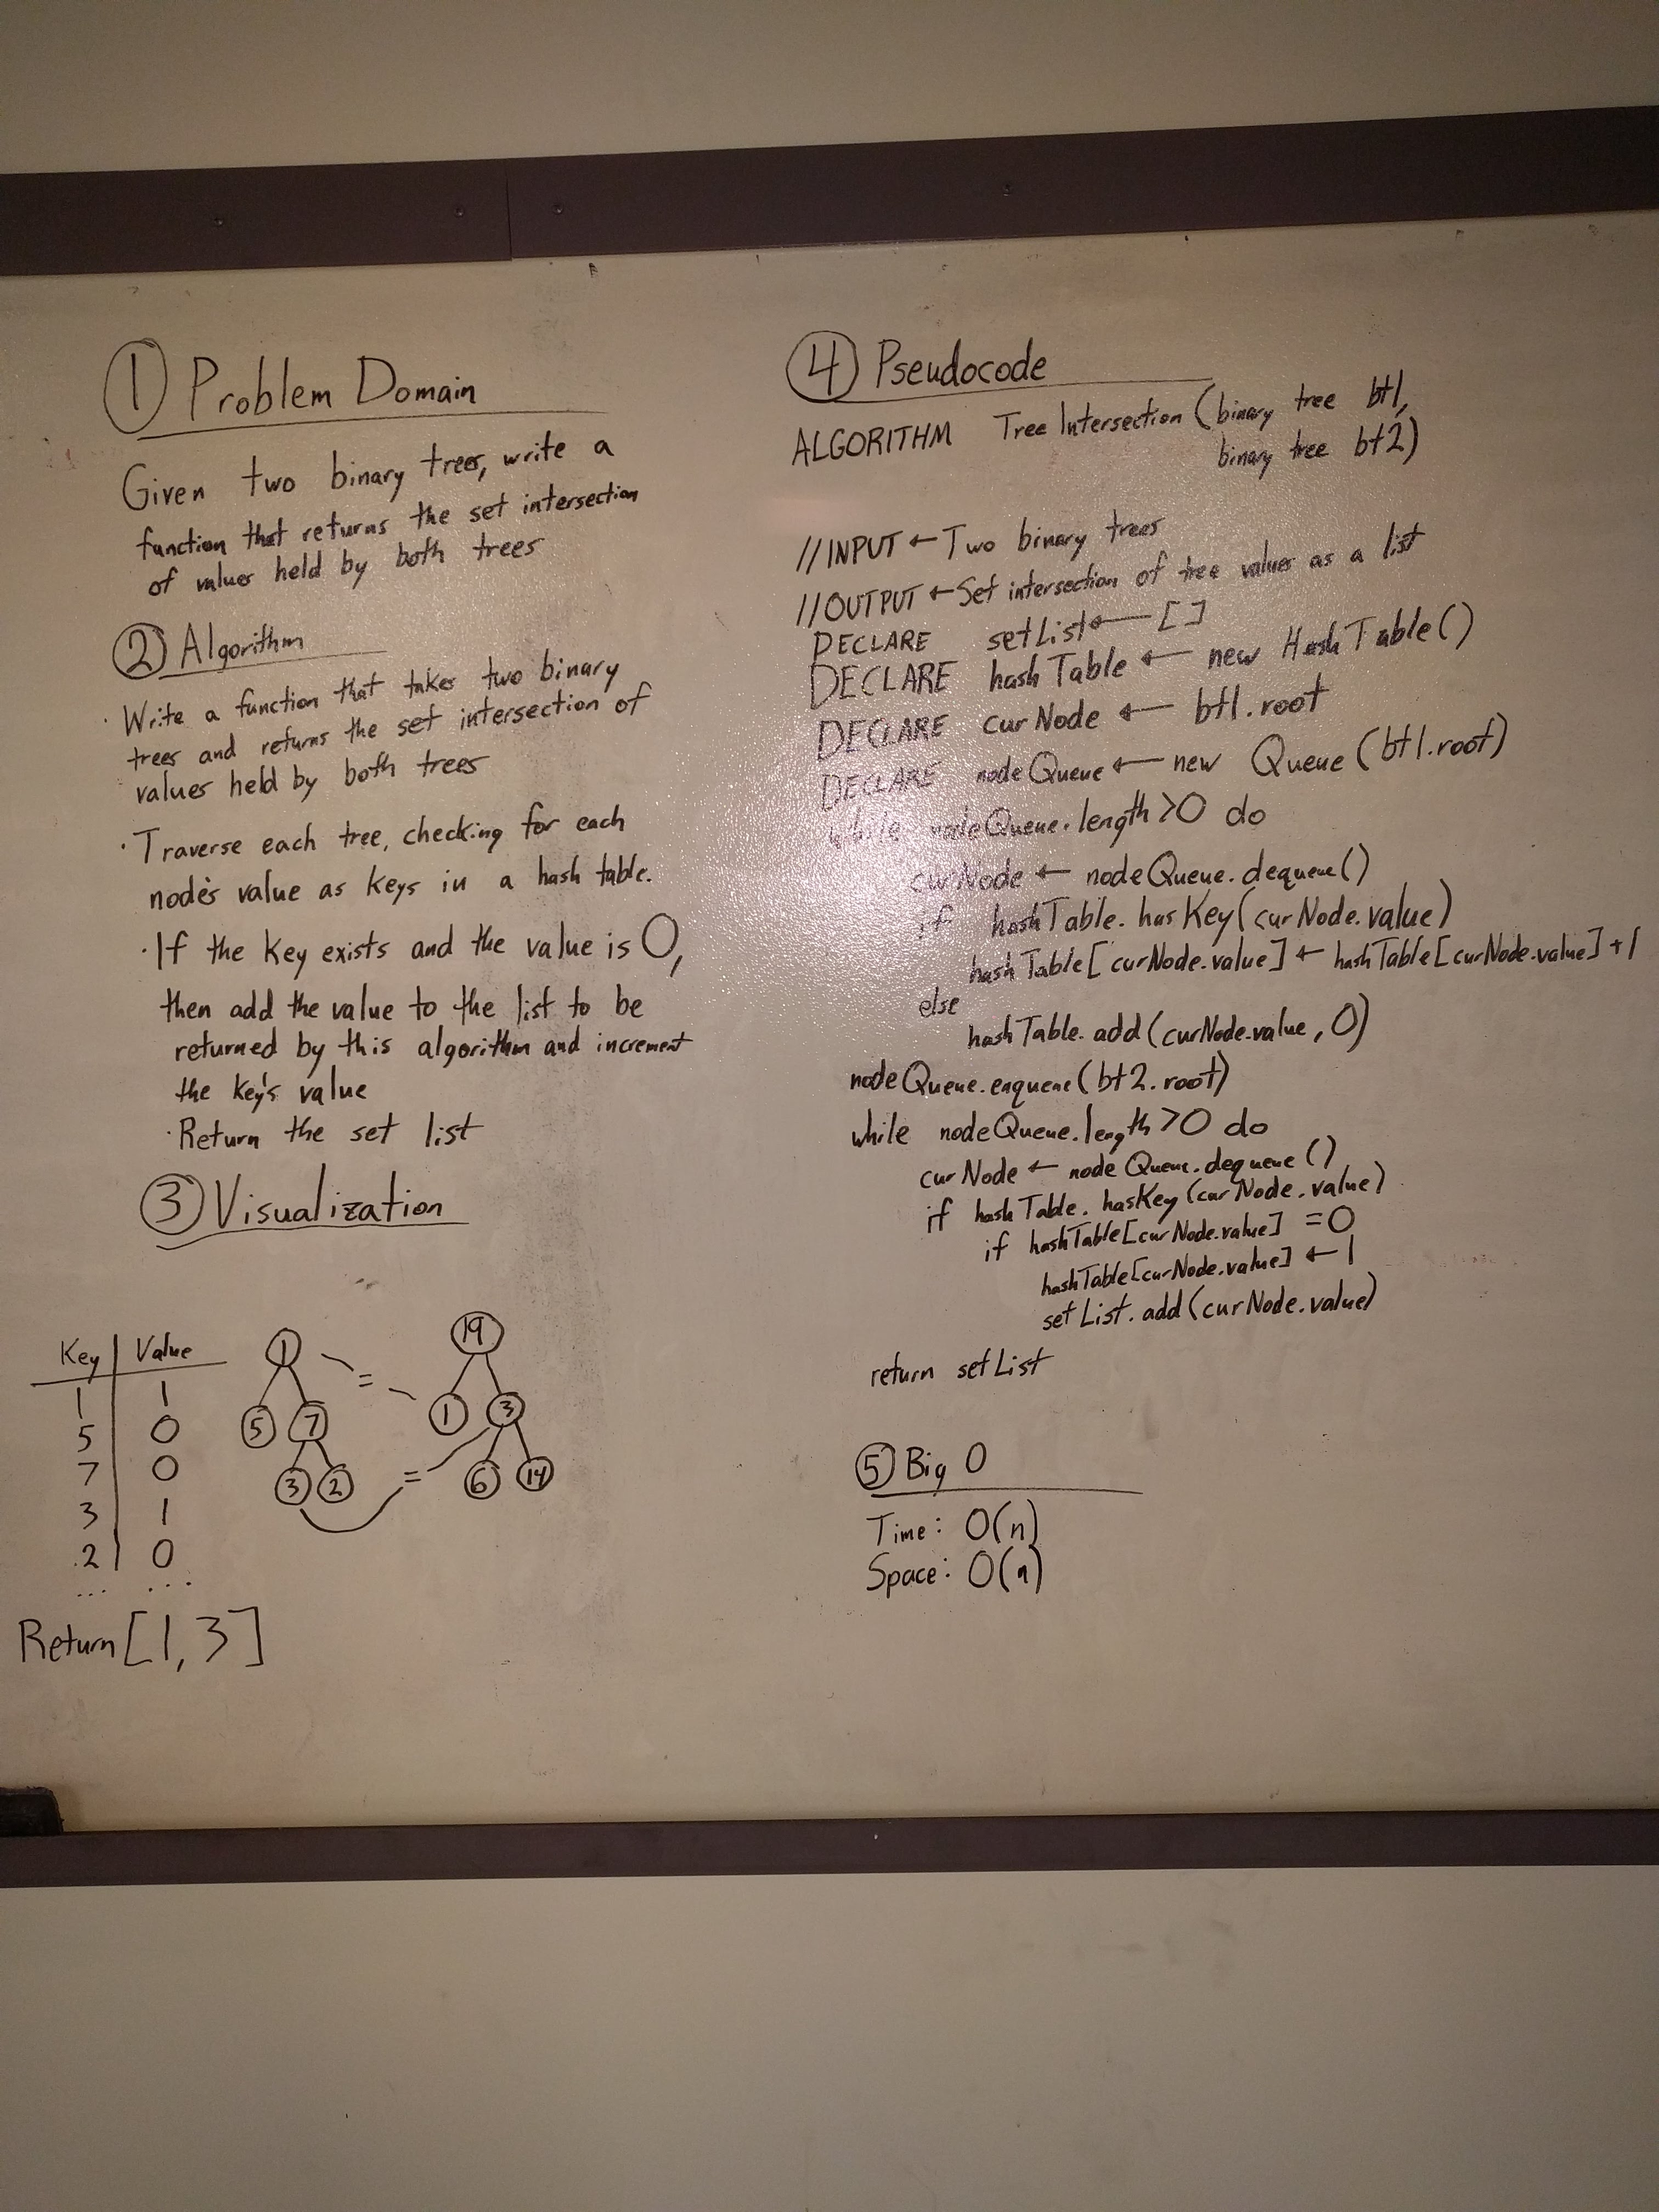 ① Problem Domain
Given two binary trees, write a
function that returns the set intersection
of values held by both trees
② Algorithm
· Write a function that takes two binary
trees and returns the set intersection of
values held by both trees
· Traverse each tree, checking for each
node's value as keys in a hash table.
· If the key exists and the value is 0,
then add the value to the list to be
returned by this algorithm and increment
the key's value
· Return the set list
③ Visualization
Key | Value
1 | 1
5 | 0
7 | 0
3 | 1
2 | 0
... ...
1
5 7
3 2
=
=
19
1 3
6 14
Return [1, 3]
④ Pseudocode
ALGORITHM Tree Intersection (binary tree bt1,
binary tree bt2)
//INPUT ← Two binary trees
//OUTPUT ← Set intersection of tree values as a list
DECLARE setList ← []
DECLARE hashTable ← new HashTable()
DECLARE curNode ← bt1.root
DECLARE nodeQueue ← new Queue(bt1.root)
while nodeQueue.length > 0 do
curNode ← nodeQueue.dequeue()
if hashTable.hasKey(curNode.value)
hashTable[curNode.value] ← hashTable[curNode.value] + 1
else
hashTable.add(curNode.value, 0)
nodeQueue.enqueue(bt2.root)
while nodeQueue.length > 0 do
curNode ← nodeQueue.dequeue()
if hashTable.hasKey(curNode.value)
if hashTable[curNode.value] = 0
hashTable[curNode.value] ← 1
setList.add(curNode.value)
return setList
⑤ Big O
Time: O(n)
Space: O(n)